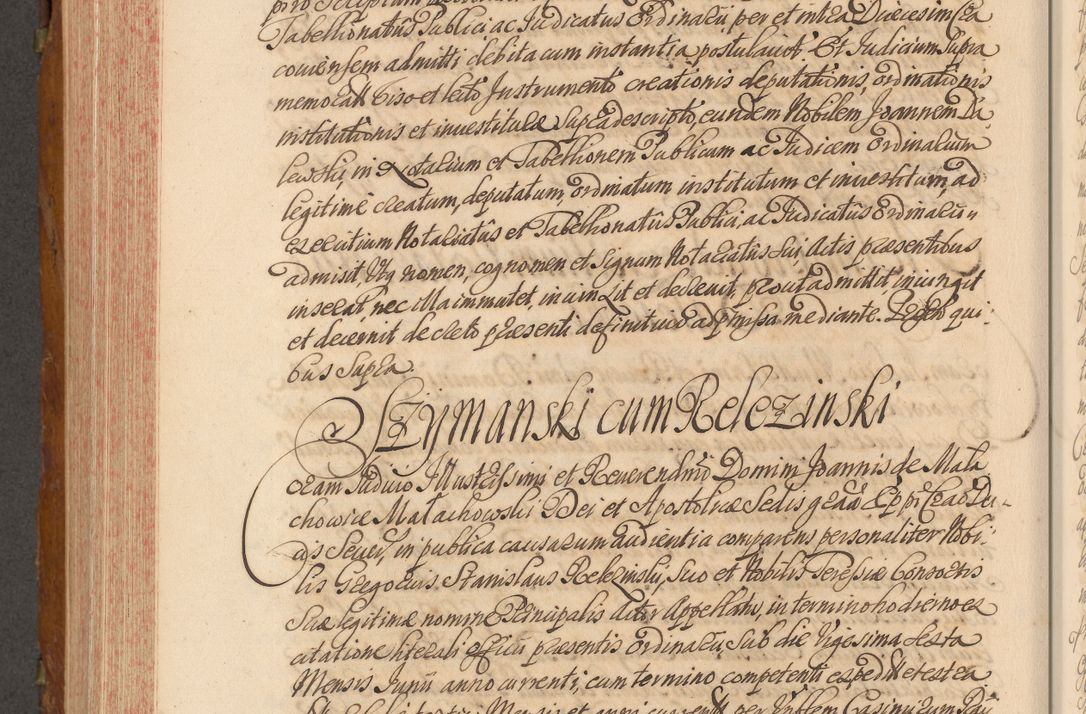 Tabellionatûs Publici ac Iudicatus Ordinarij, per et intra Diœcesim Cra
coviensem admitti debita cum instantia postulavit. Et Iudicium supra
memorat. viso et lecto Instrumento creationis deputationis, ordinationis
institutionis et investituræ supradescripto, eundem Nobilem Joannem
lewski, in Notarium et Tabellionem Publicum ac Iudicem Ordinarium
legitime creatum, deputatum, ordinatum institutum et investitum, ad
exercitium Notariatûs et Tabellionatûs Publici, ac Iudicatûs Ordinarij
admisit, Utq nomen, cognomen et signum Notariatûs sui Actis præsentibus
inserat, nec illa immutet, iniunxit et decrevit, prout admittit iniungit
et decernit decreto præsenti definitivo ad præmissa mediante. qui-
bus supra.
Szymanski cum Relezinski
Coram Iudicio Illustrissimi et Reverendmi Domini Joannis de Mala
chowice Małachowski Dei et Apostolicæ Sedis graâ Eppi Crac: Du-
cis Sever, in publica causarum audientia comparens personaliter Nobi-
lis Gregorius Stanislaus Relezinski, suo et Nobilis Teressiæ Consortis
suæ legitimæ nomine Principalis Actor Appellatu, in termino hodierno ex
citatione literali officij præsentis Ordinarij, sub die Vigesima Sexta
Mensis Junij anno currenti, cum termino competenti expedit et extra